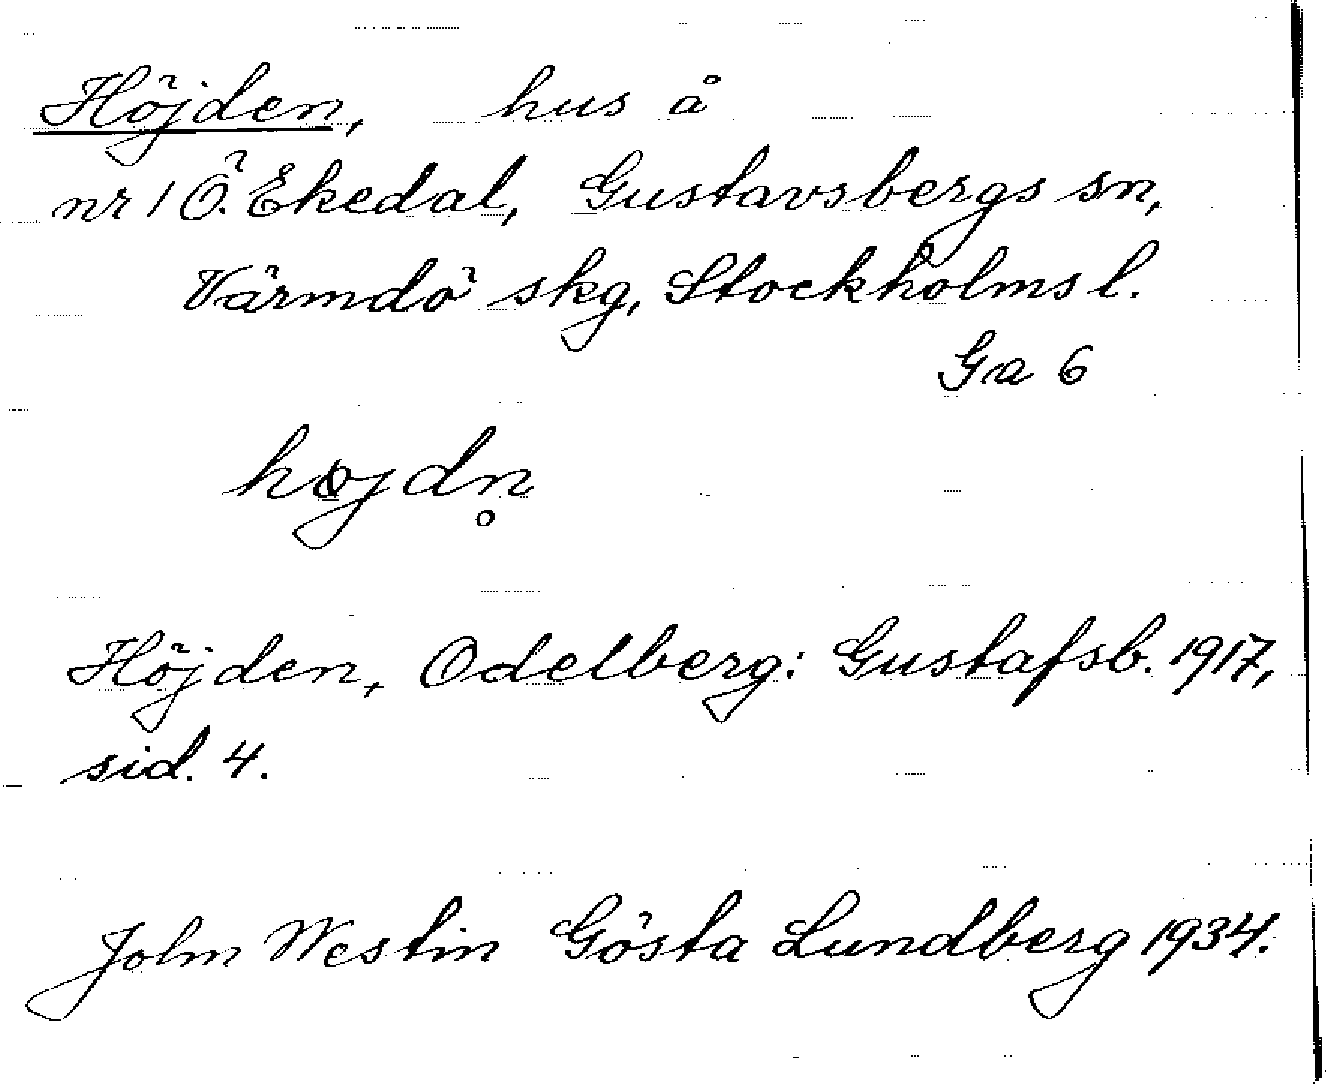 Höjden, hus å
nr 1 Ö. Ekedal, Gustavsbergs sn,
Värmdö skg, Stockholms l.
Ga 6
højdn̥
Höjden, Odelberg: Gustafsb. 1917,
sid. 4.
John Westin Gösta Lundberg 1934.